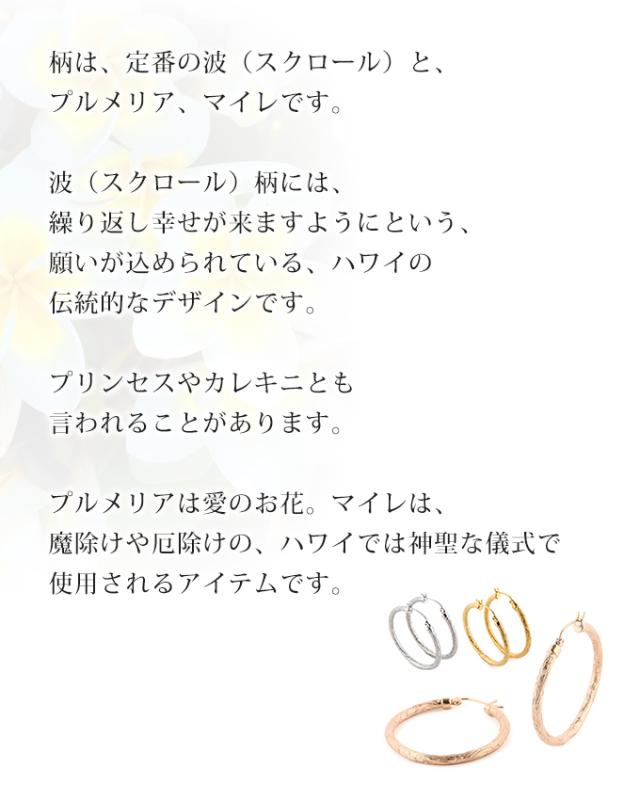 柄は、定番の波（スクロール）と、
プルメリア、マイレです。
波（スクロール）柄には、
繰り返し幸せが来ますようにという、
願いが込められている、ハワイの
伝統的なデザインです。
プリンセスやカレキニとも
言われることがあります。
プルメリアは愛のお花。マイレは、
魔除けや厄除けの、ハワイでは神聖な儀式で
使用されるアイテムです。